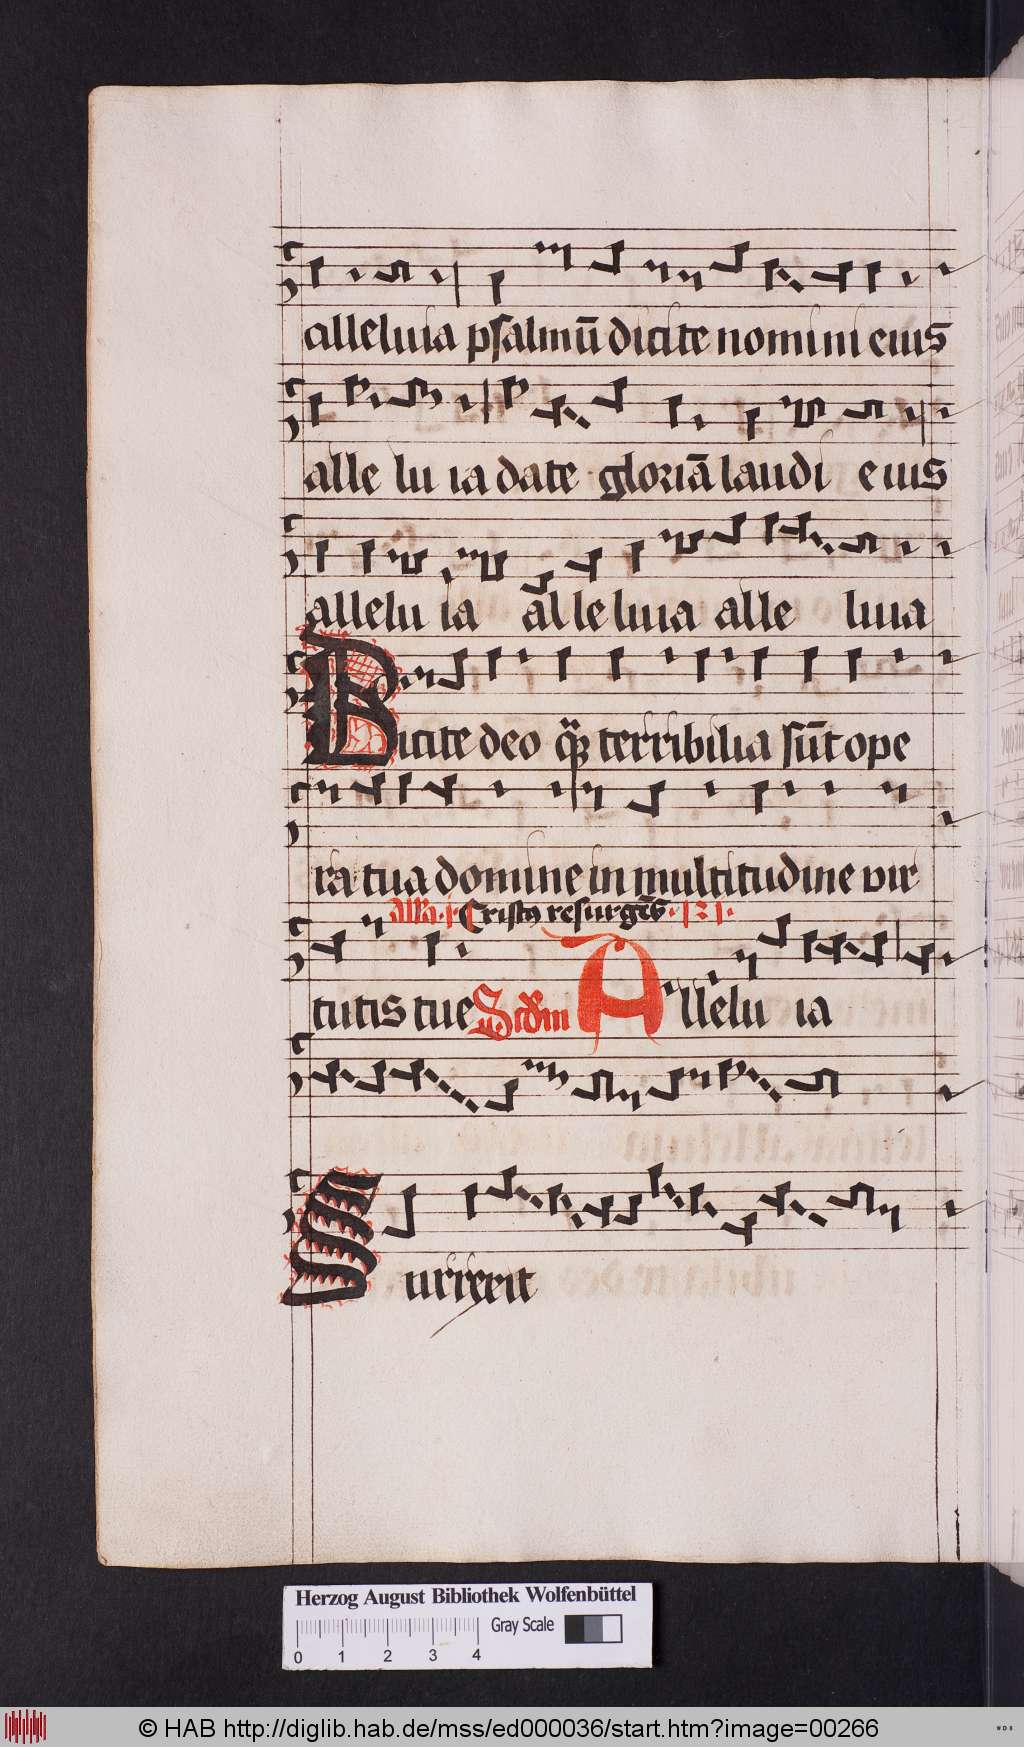 alleluia psalmū dicite nomini eius
alle lu ia date gloriā laudi eius
allelu ia alleluia alle luia
Dicite deo terribilia sūt ope
ra tua domine in multitudine vir
Alla Cristus resurgēs
tutis tue Scdm Allelu ia
Surrexit
Herzog August Bibliothek Wolfenbüttel
Gray Scale
0 1 2 3 4
© HAB http://diglib.hab.de/mss/ed000036/start.htm?image=00266